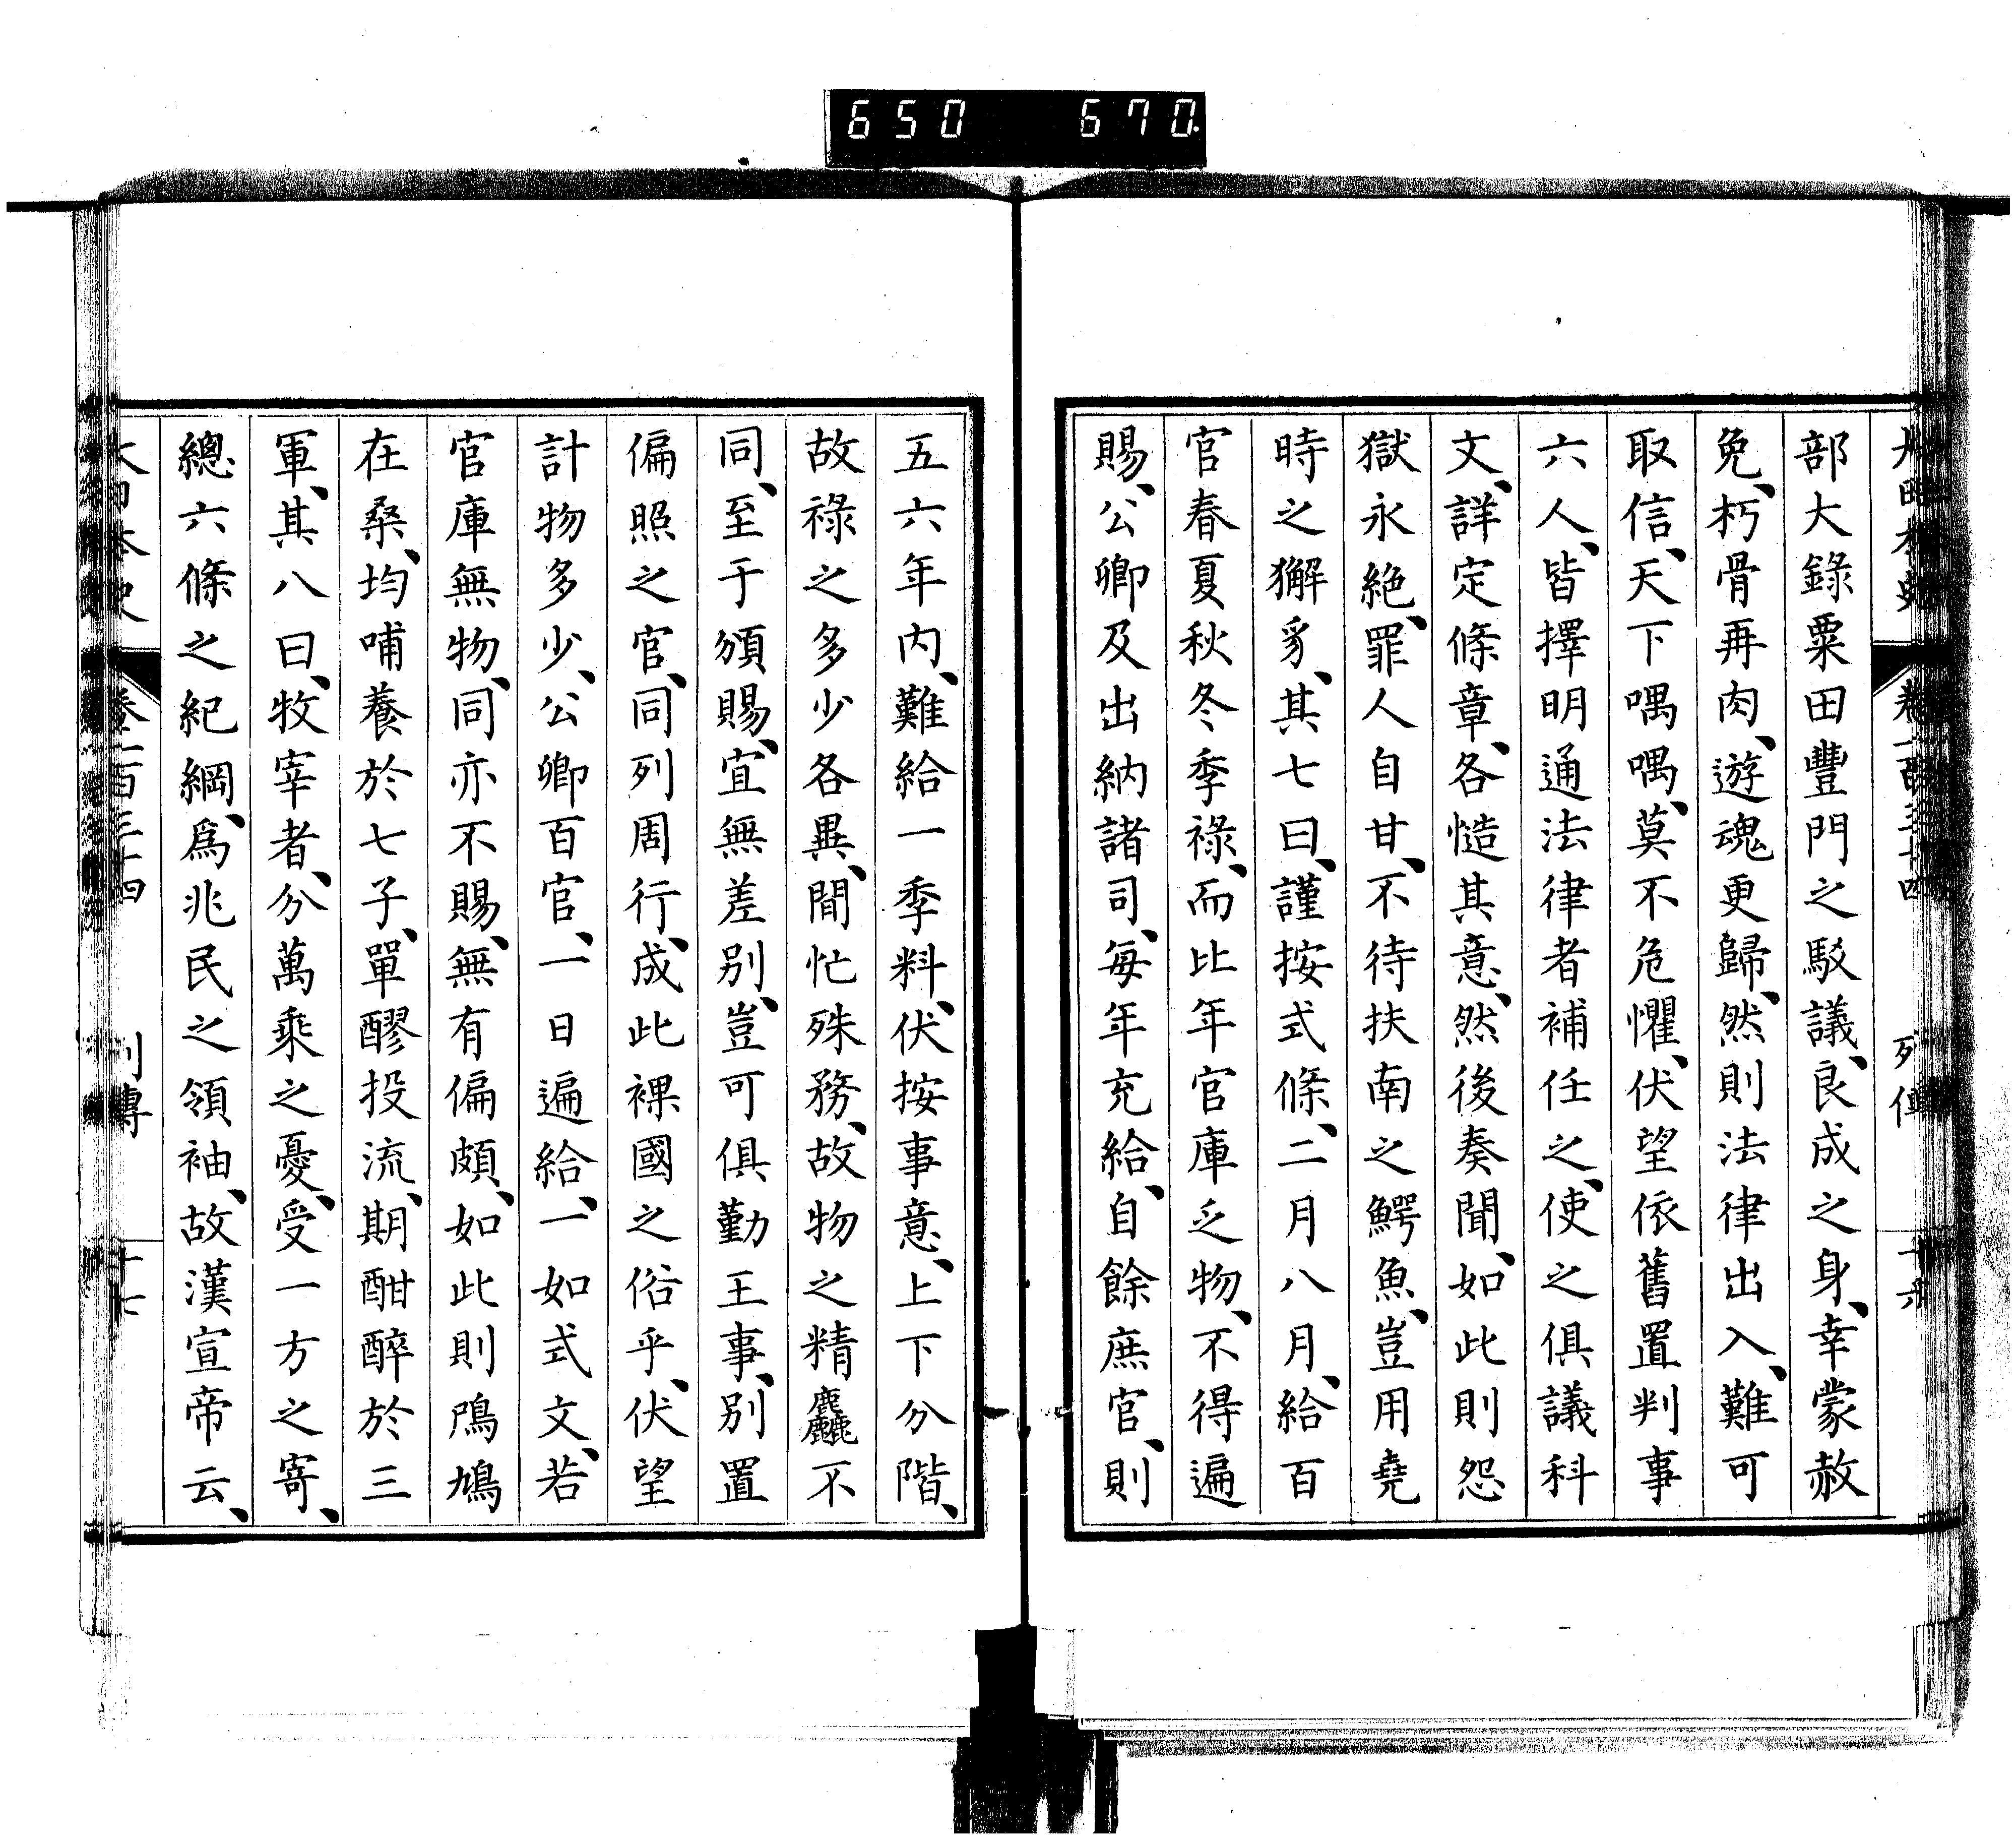 650 670.
部大錄粟田豐門之駁議、良成之身、幸蒙赦
免、朽骨再肉、遊魂更歸、然則法律出入、難可
取信、天下喁喁、莫不危懼、伏望依舊置判事
六人、皆擇明通法律者補任之、使之俱議科
文、詳定條章、各慥其意、然後奏聞、如此則怨
獄永絕、罪人自甘、不待扶南之鰐魚、豈用堯
時之獬豸、其七曰、謹按式條、二月八月、給百
官春夏秋冬季祿、而比年官庫乏物、不得遍
賜、公卿及出納諸司、每年充給、自餘庶官、則
五六年內、難給一季料、伏按事意、上下分階、
故祿之多少各異、閒忙殊務、故物之精麤不
同、至于頒賜、宜無差別、豈可俱勤王事、別置
偏照之官、同列周行、成此裸國之俗乎、伏望
計物多少、公卿百官、一日遍給、一如式文、若
官庫無物、同亦不賜、無有偏頗、如此則鳲鳩
在桑、均哺養於七子、單醪投流、期酣醉於三
軍、其八曰、牧宰者、分萬乘之憂、受一方之寄、
總六條之紀綱、爲兆民之領袖、故漢宣帝云、